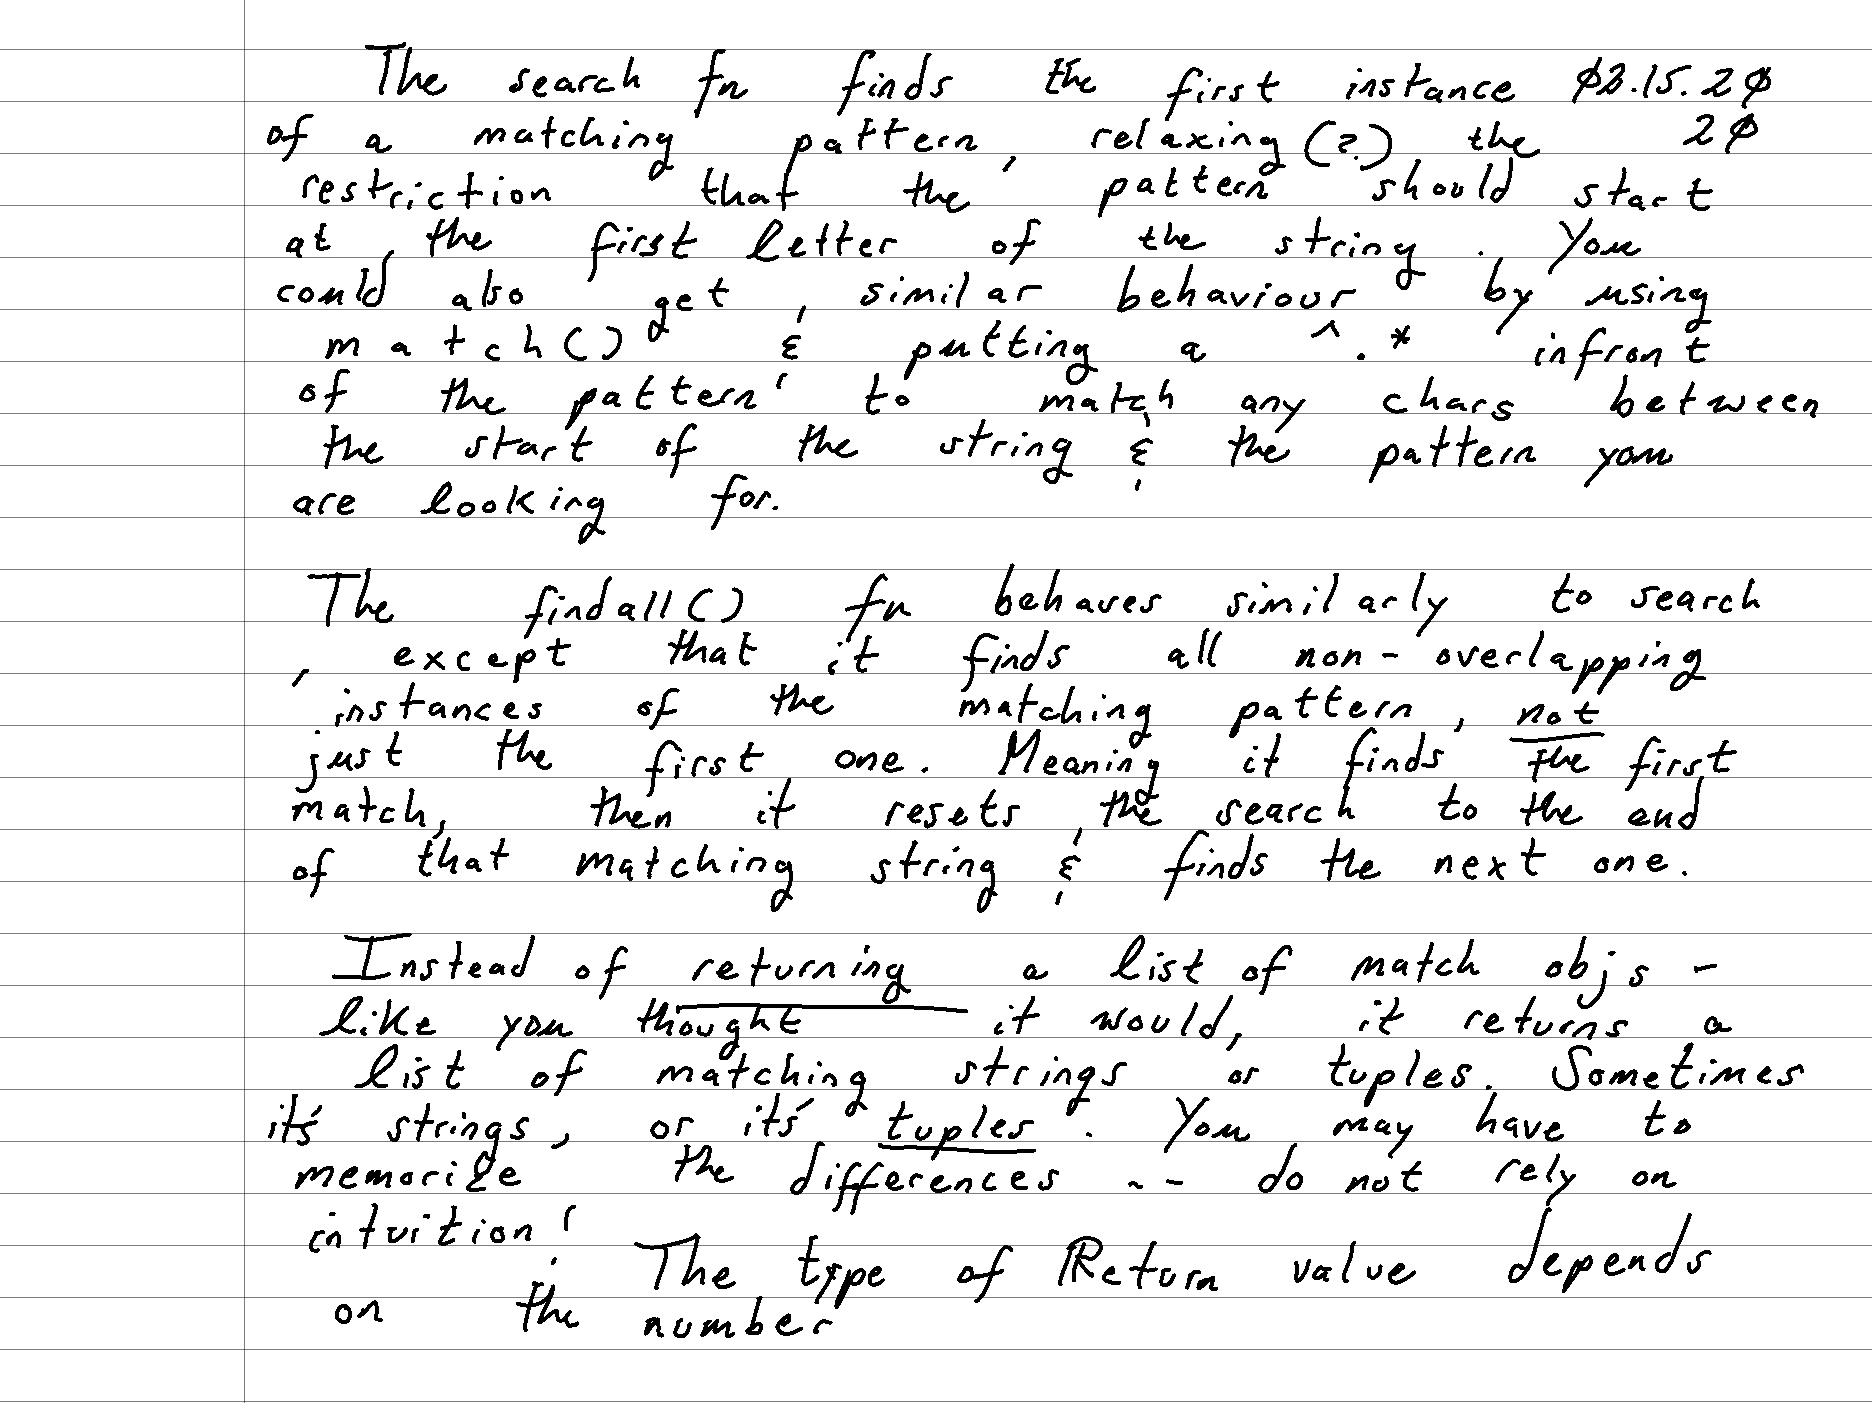 The search fn finds the first instance 03.15.20
of a matching pattern, relaxing (?) the 20
restriction that the pattern should start
at the first letter of the string. You
could also get similar behaviour by using
match() & putting a ^.* infront
of the pattern to match any chars between
the start of the string & the pattern you
are looking for.
The findall() fn behaves similarly to search
, except that it finds all non-overlapping
instances of the matching pattern, not
just the first one. Meaning it finds the first
match, then it resets the search to the end
of that matching string & finds the next one.
Instead of returning a list of match objs -
like you thought it would, it returns a
list of matching strings or tuples. Sometimes
it's strings, or it's tuples. You may have to
memorize the differences -- do not rely on
intuition! The type of Return value depends
on the number